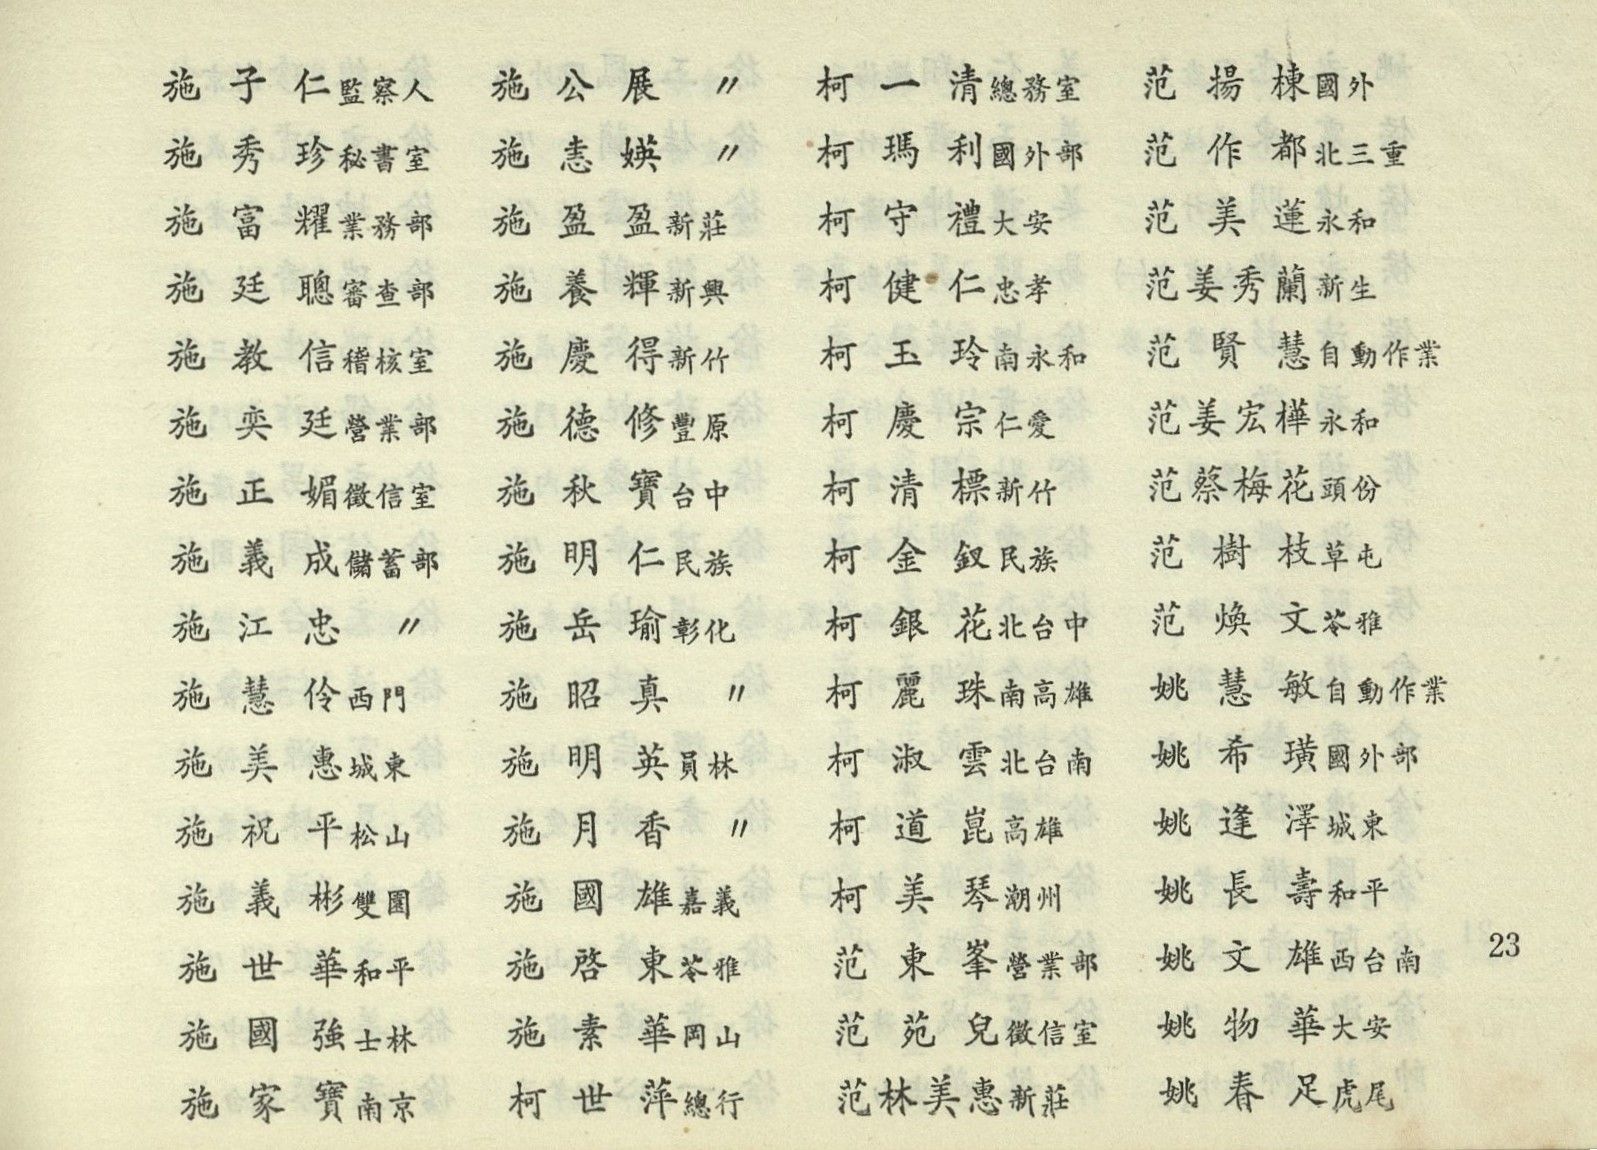 施子仁監察人
施秀珍秘書室
施富耀業務部
施廷聰審查部
施教信稽核室
施奕廷營業部
施正媚徵信室
施義成儲蓄部
施江忠〃
施慧伶西門
施美惠城東
施祝平松山
施義彬雙園
施世華和平
施國強士林
施家寶南京
施公展〃
施恚媖〃
施盈盈新莊
施養輝新興
施慶得新竹
施德修豐原
施秋寶台中
施明仁民族
施岳瑜彰化
施昭真〃
施明英員林
施月香〃
施國雄嘉義
施啓東苓雅
施素華岡山
柯世萍總行
柯一清總務室
柯瑪利國外部
柯守禮大安
柯健仁忠孝
柯玉玲南永和
柯慶宗仁愛
柯清標新竹
柯金釵民族
柯銀花北台中
柯麗珠南高雄
柯淑雲北台南
柯道崑高雄
柯美琴潮州
范東峯營業部
范苑兒徵信室
范林美惠新莊
范揚棟國外
范作都北三重
范美蓮永和
范姜秀蘭新生
范賢慧自動作業
范姜宏樺永和
范蔡梅花頭份
范樹枝草屯
范煥文苓雅
姚慧敏自動作業
姚希璜國外部
姚逢澤城東
姚長壽和平
姚文雄西台南
姚物華大安
姚春足虎尾
23